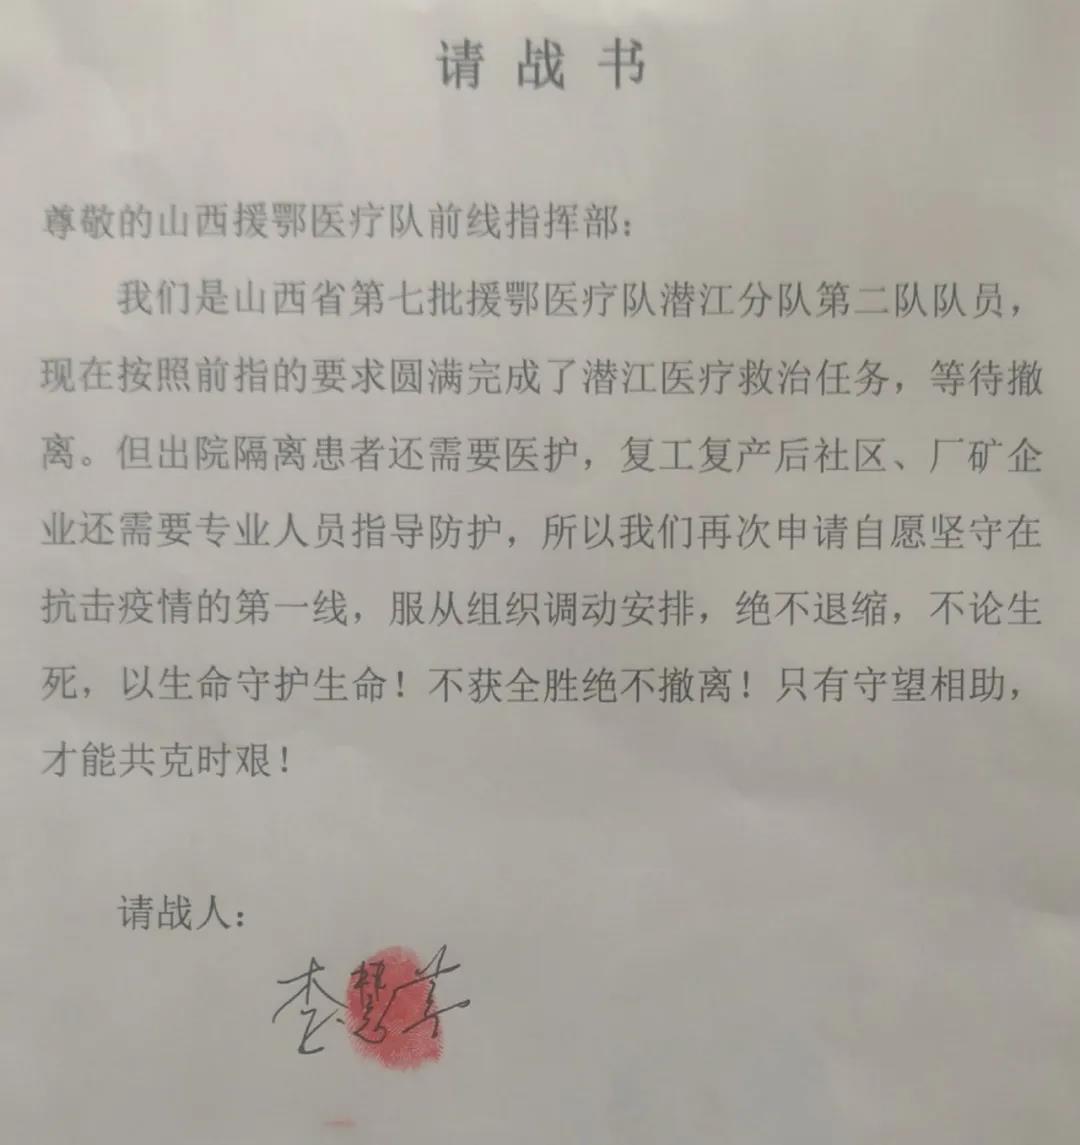 请战书
尊敬的山西援鄂医疗队前线指挥部：
我们是山西省第七批援鄂医疗队潜江分队第二队队员，
现在按照前指的要求圆满完成了潜江医疗救治任务，等待撤
离。但出院隔离患者还需要医护，复工复产后社区、厂矿企
业还需要专业人员指导防护，所以我们再次申请自愿坚守在
抗击疫情的第一线，服从组织调动安排，绝不退缩，不论生
死，以生命守护生命！不获全胜绝不撤离！只有守望相助，
才能共克时艰！
请战人：